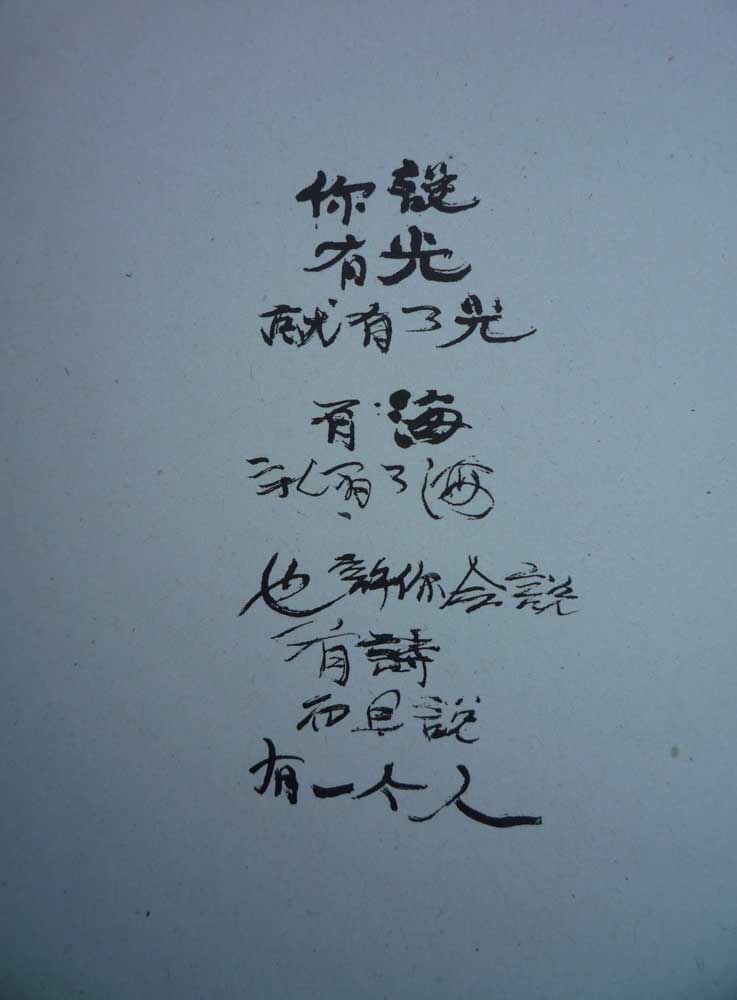 你說
有光
就有了光
有海
就有了海
也許你会說
有詩
而且說
有一个人